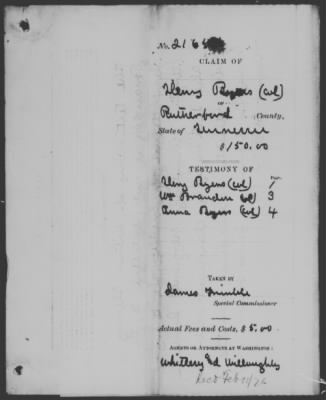 No. 2164
CLAIM OF
Henry Byers (col)
OF
Rutherford County,
State of Tennessee
$150.00
TESTIMONY OF
Page.
Henry Byers (col) 1
Wm Brandon col) 3
Anna Byers (col) 4
TAKEN BY
James Trimble
Special Commissioner
Actual Fees and Costs, $5.00
AGENTS OR ATTORNEYS AT WASHINGTON:
Whittlesey & Willoughby
Recd Feb 11/76